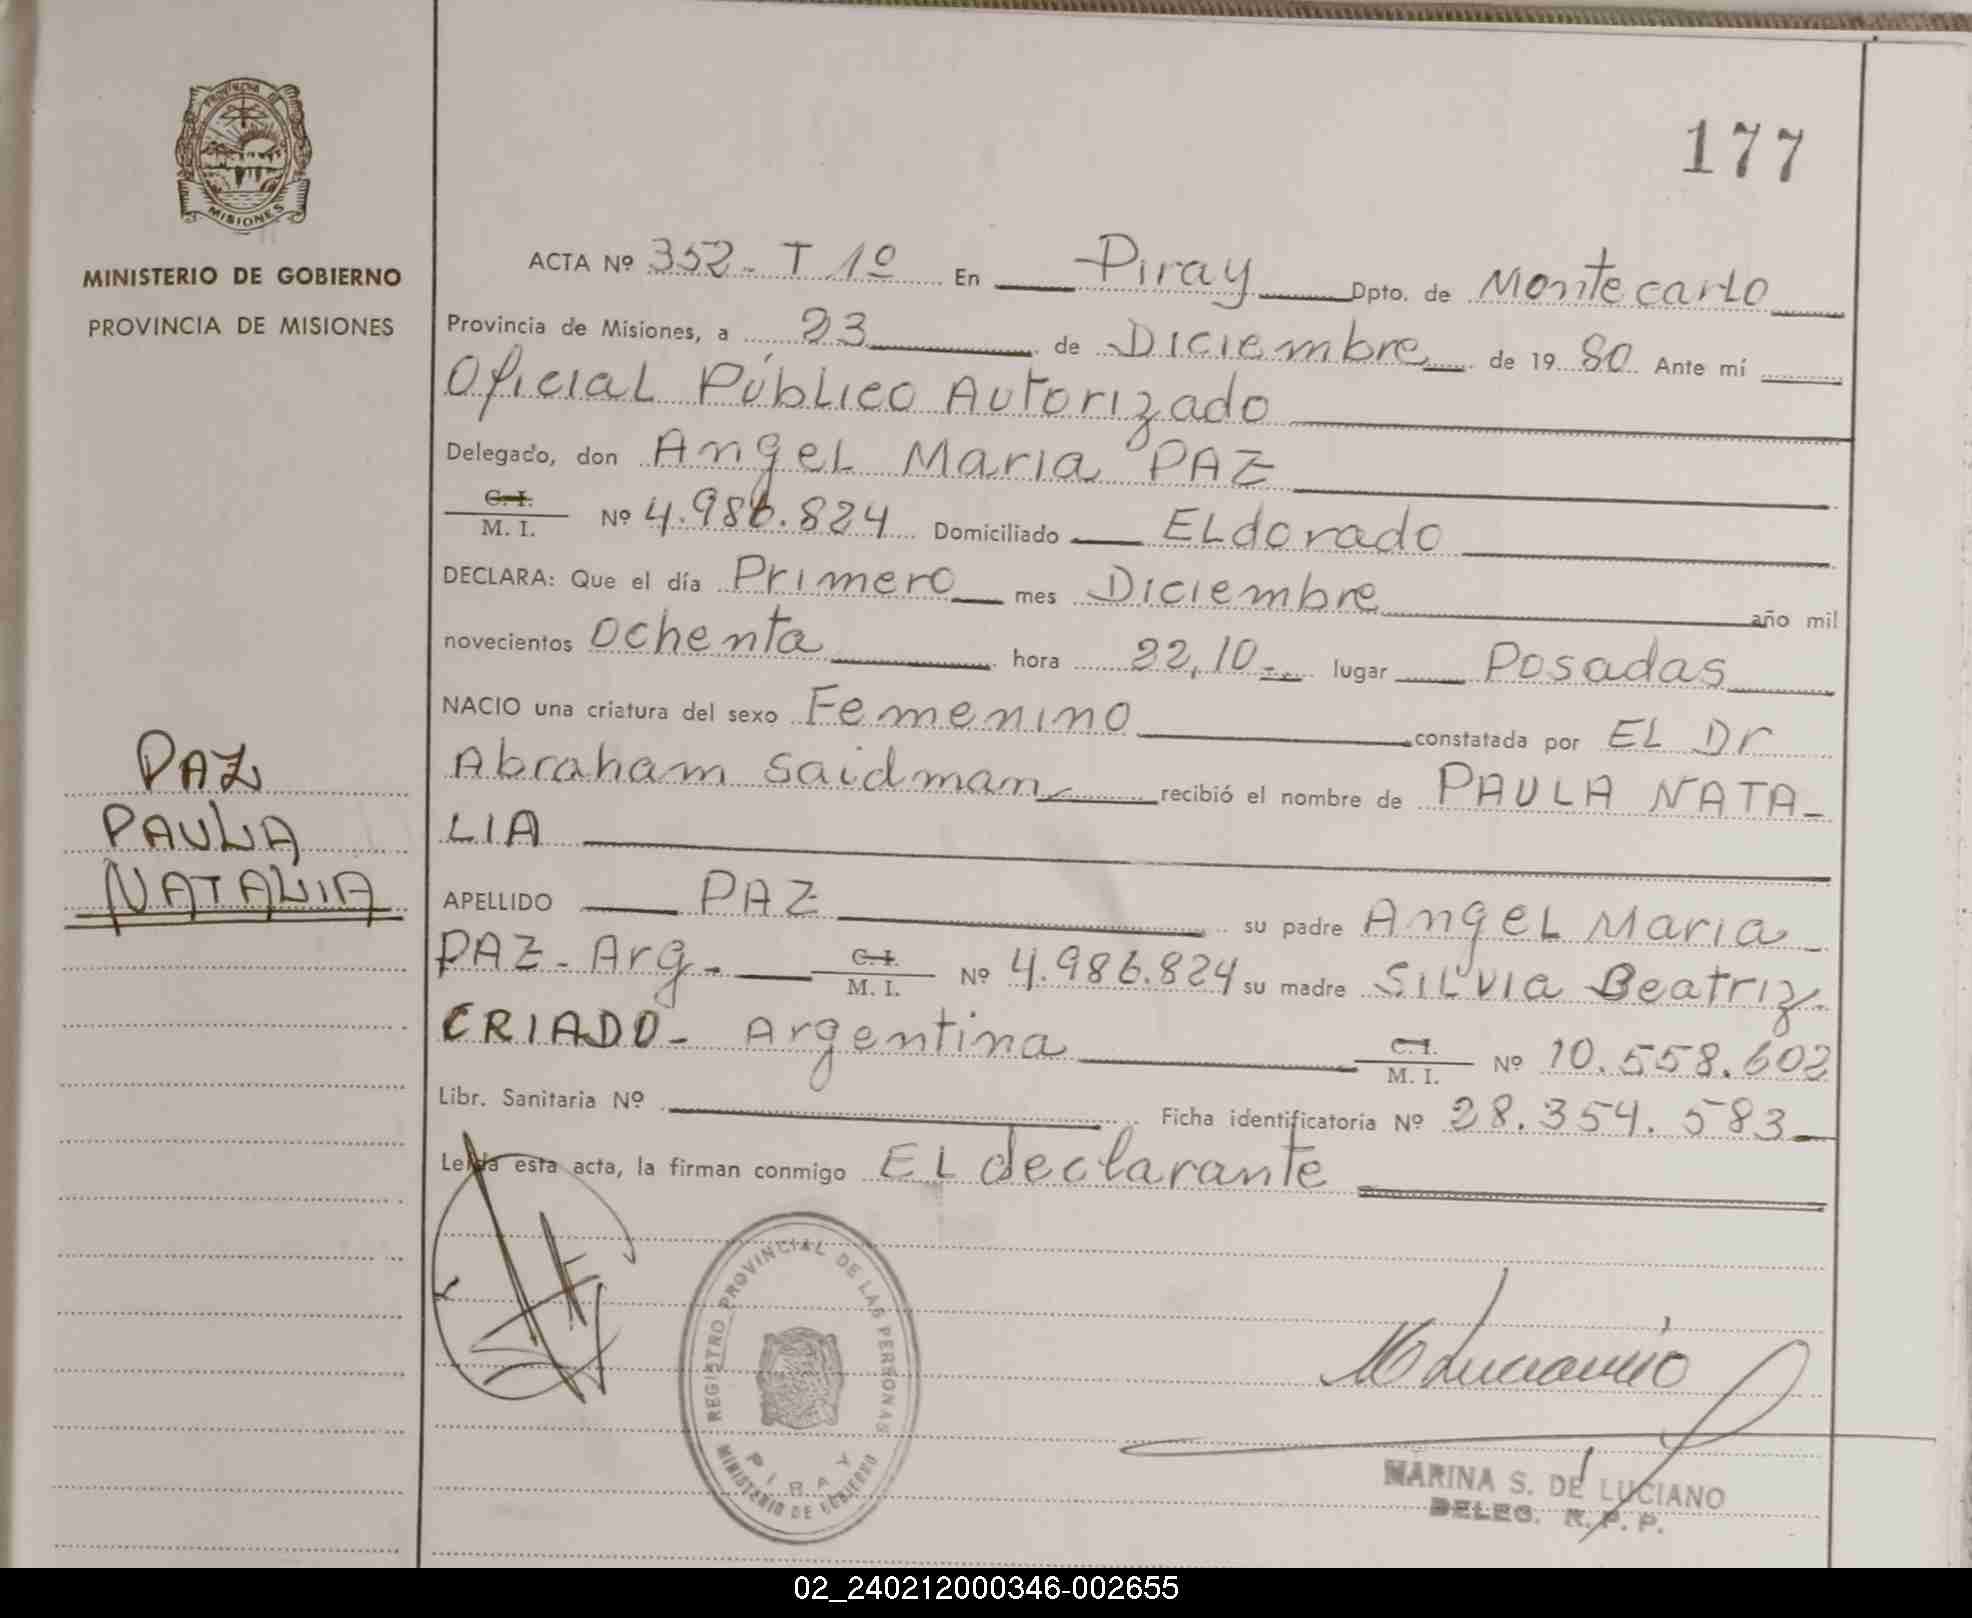 PROVINCIA DE
MISIONES
MINISTERIO DE GOBIERNO
PROVINCIA DE MISIONES
177
ACTA Nº 352- T 1º En Piray Dpto. de Montecarlo
Provincia de Misiones, a 23 de Diciembre de 19 80 Ante mí
Oficial Público Autorizado
Delegado, don Angel Maria PAZ
C. I.
M. I. Nº 4.986.824 Domiciliado ELdorado
DECLARA: Que el día Primero mes Diciembre año mil
novecientos Ochenta hora 22,10.- lugar Posadas
NACIO una criatura del sexo Femenino constatada por EL Dr
Abraham Saidman recibió el nombre de PAULA NATA-
LIA
APELLIDO PAZ su padre Angel Maria
PAZ- Arg.- C. I. M. I. Nº 4.986.824 su madre Silvia Beatriz
CRIADO- Argentina C. I. M. I. Nº 10.558.602
Libr. Sanitaria Nº Ficha identificatoria Nº 28.354.583
Leída esta acta, la firman conmigo EL declarante
PAZ
PAULA
NATALIA
REGISTRO PROVINCIAL DE LAS PERSONAS
PIRAY
MINISTERIO DE GOBIERNO
MARINA S. DE LUCIANO
DELEG. R. P. P.
02_240212000346-002655